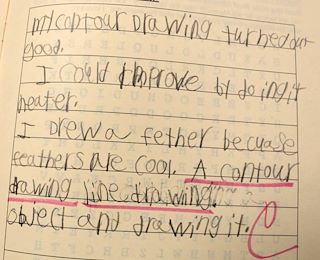 my contour drawing turned out
good.
I could improve by doing it
neater.
I drew a fether becuase
feathers are cool. A contour
drawing line drawing.
object and drawing it.